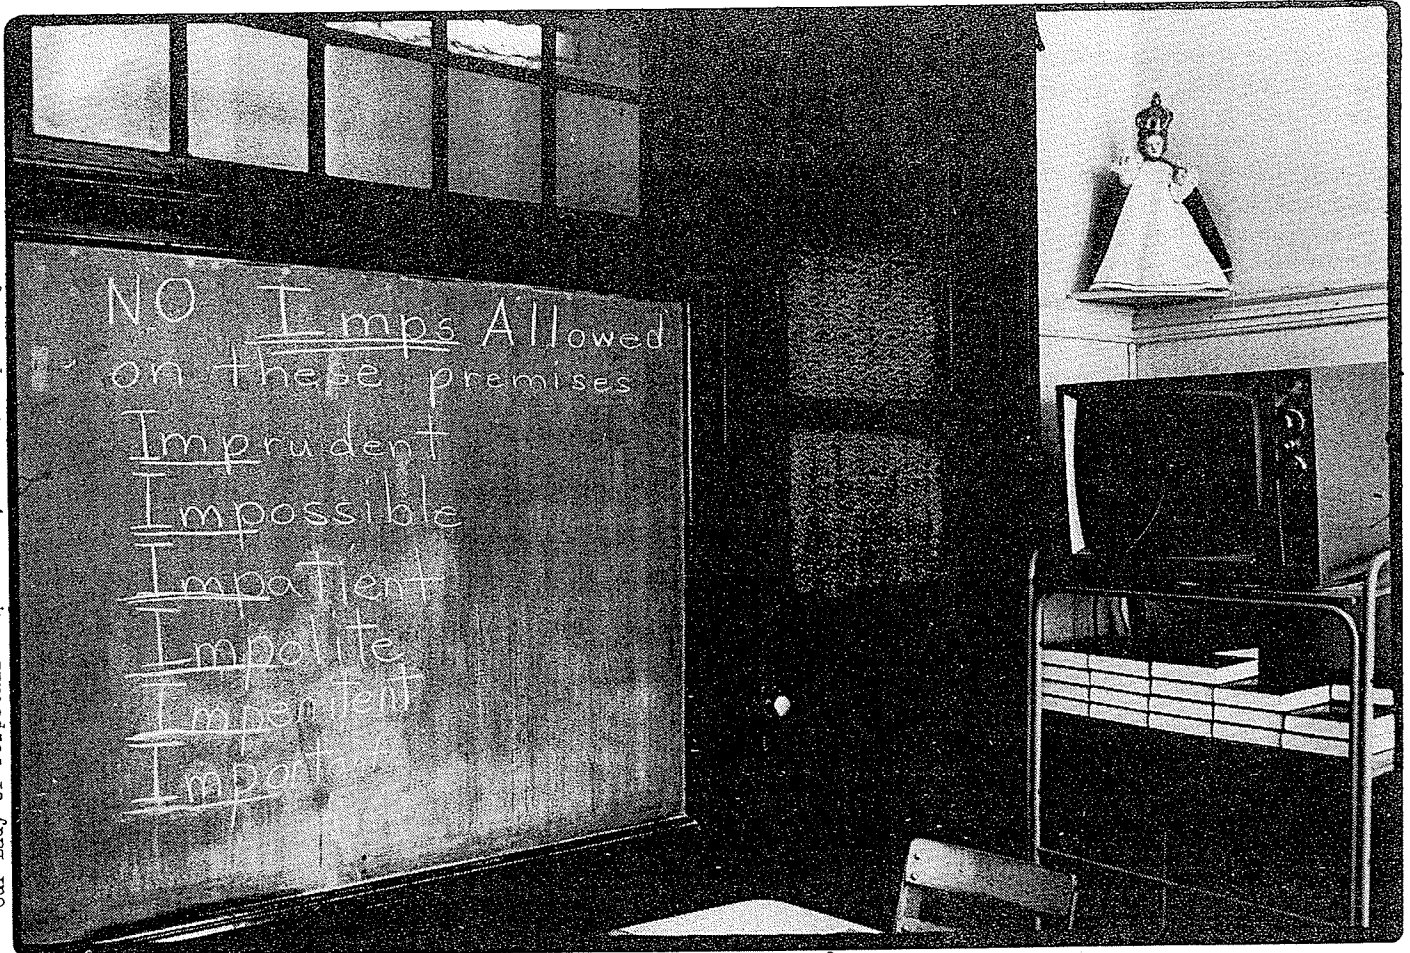 NO Imps Allowed
on these premises
Imprudent
Impossible
Impatient
Impolite
Impenitent
Important
Our Lady of